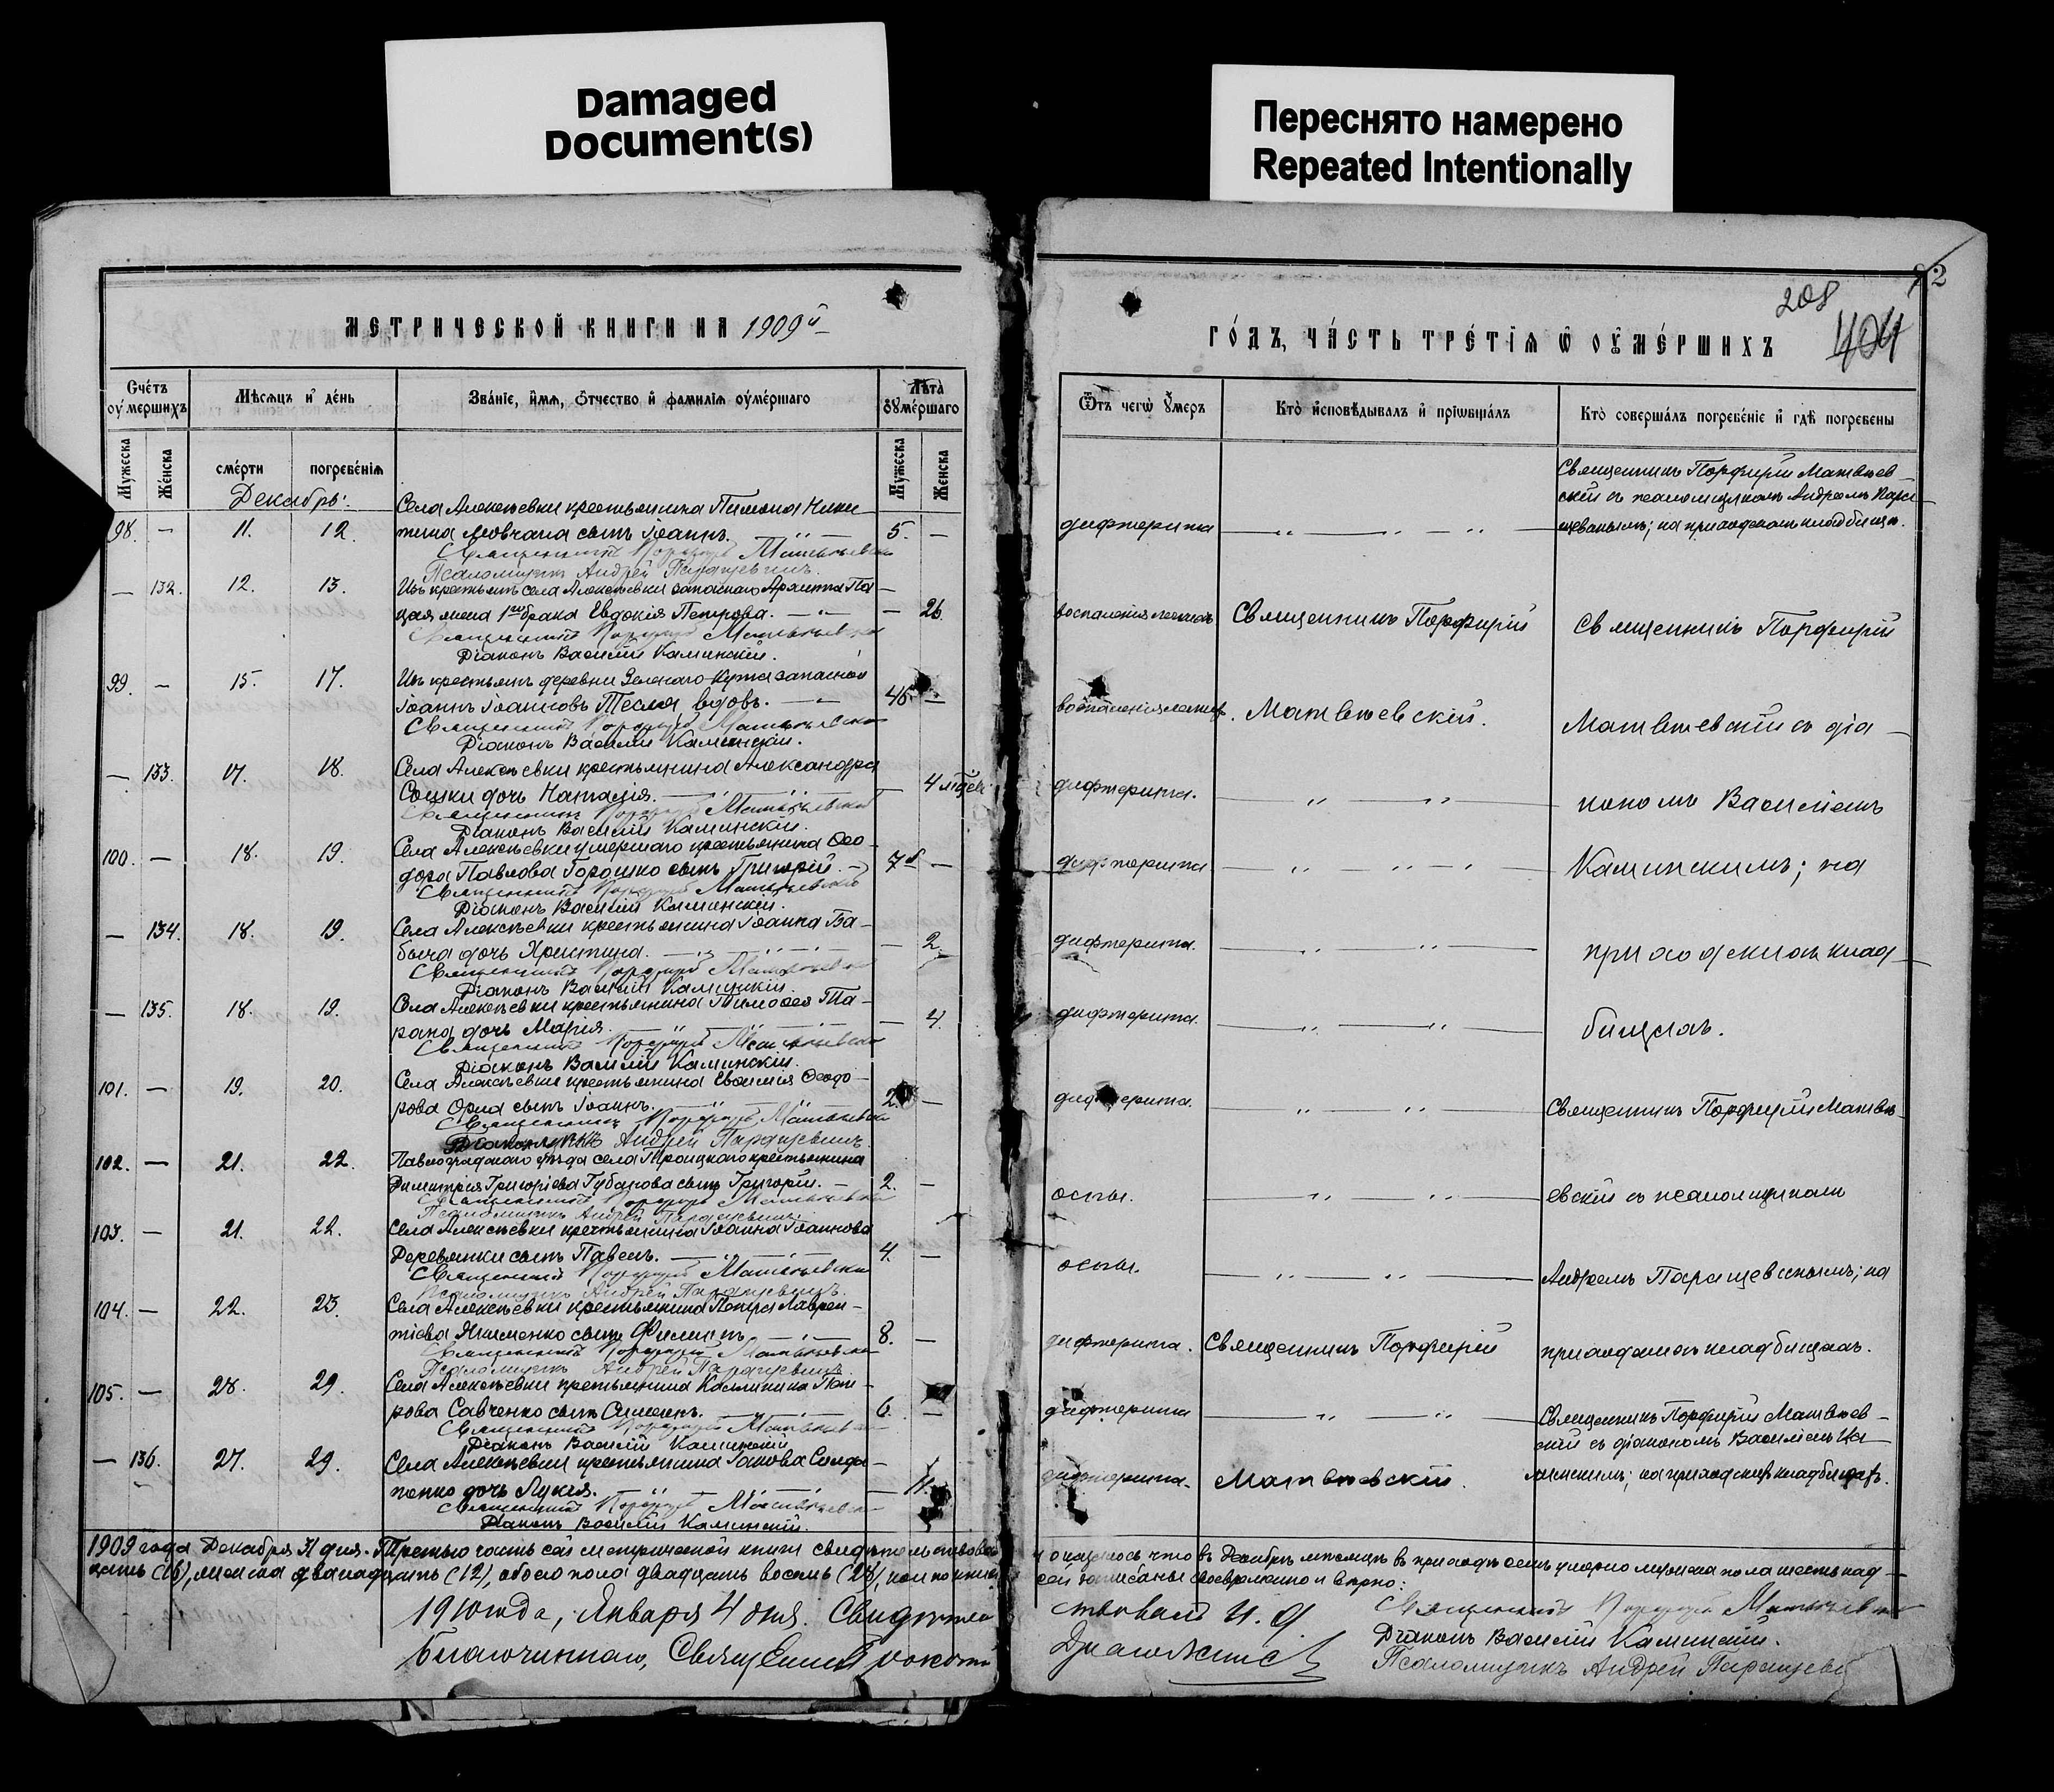 Damaged
Document(s)
Переснято намерено
Repeated Intentionally
МЕТРИЧЕСКОЙ КНИГИ НА 1909й
Счетъ оумершихъ
Мѣсяцъ и день
Званіе, имя, отчество и фамилія оумершаго
Лѣта оумершаго
Мужеска
Женска
смерти
погребенія
Мужеска
Женска
Декабрь:
Села Алексѣевки крестьянина Пимона Ники-
98. — 11. 12. тина Мовчана сынъ Іоаннъ. 5. —
Священникъ Порфирій Матвѣевскій
Псаломщикъ Андрей Паращевинъ.
— 132. 12. 13. Изъ крестьянъ села Алексѣевки запаснаго Архипа Па-
цая жена 1го брака Евдокія Петрова. — 26.
Священникъ Порфирій Матвѣевскій
Діаконъ Василій Каминскій.
99. — 15. 17. Изъ крестьянъ деревни Зеленаго Кута запасной
Іоаннъ Іоанновъ Тесля вдовъ. 46. —
Священникъ Порфирій Матвѣевскій
Діаконъ Василій Каминскій.
— 133. 17. 18. Села Алексѣевки крестьянина Александра
Сошки дочь Наталія. — 4 мѣсяц.
Священникъ Порфирій Матвѣевскій
Діаконъ Василій Каминскій.
100. — 18. 19. Села Алексѣевки умершаго крестьянина Ѳео-
дора Павлова Горошко сынъ Григорій. 7 —
Священникъ Порфирій Матвѣевскій
Діаконъ Василій Каминскій.
— 134. 18. 19. Села Алексѣевки крестьянина Іоанна Ба-
быча дочь Христина. — 2.
Священникъ Порфирій Матвѣевскій
Діаконъ Василій Каминскій.
— 135. 18. 19. Села Алексѣевки крестьянина Тимоѳея Та-
рана дочь Марія. — 4.
Священникъ Порфирій Матвѣевскій
Діаконъ Василій Каминскій.
101. — 19. 20. Села Алексѣевки крестьянина Евѳимія Ѳеодо-
рова Орла сынъ Іоаннъ. 2. —
Священникъ Порфирій Матвѣевскій
Андрей Паращевинъ.
102. — 21. 22. Павлоградскаго уѣзда села Троицкаго крестьянина
Димитрія Григоріева Губарова сынъ Григорій. 2. —
Священникъ Порфирій Матвѣевскій
Псаломщикъ Андрей Паращевинъ.
103. — 21. 22. Села Алексѣевки крестьянина Іоанна Іоаннова
Деревянки сынъ Павелъ. 4. —
Священникъ Порфирій Матвѣевскій
Псаломщикъ Андрей Паращевинъ.
104. — 22. 23. Села Алексѣевки крестьянина Петра Лаврен-
тіева Якименко сынъ Филиппъ 8. —
Священникъ Порфирій Матвѣевскій
Псаломщикъ Андрей Паращевинъ.
105. — 28. 29. Села Алексѣевки крестьянина Каллиника Пет-
рова Савченко сынъ Симеонъ. 6. —
Священникъ Порфирій Матвѣевскій
Діаконъ Василій Каминскій
— 136. 27. 29. Села Алексѣевки крестьянина Іакова
дочь Лукія. — 11.
Священникъ Порфирій Матвѣевскій
Діаконъ Василій Каминскій.
1909 года Декабря 31 дня. Третью часть сей метрической книги свидѣтельствовали
цать (16), женска двѣнадцать (12), обоего пола двадцать восемь (28),
1910 года, Января 4 дня. Свидѣтель
Благочиннаго, Священникъ
72
208
404
ГОДЪ, ЧАСТЬ ТРЕТІЯ Ѿ ОУМЕРШИХЪ
Ѿтъ чегѡ оумеръ
Кто исповѣдывалъ и пріѡбщалъ
Кто совершалъ погребеніе и гдѣ погребены
Священникъ Порфирій Матвѣев-
скій съ псаломщикомъ Андреемъ Пара-
щевинымъ; на приходскомъ кладбищѣ.
дифтерита
воспаленія легкихъ Священникъ Порфирій Священникъ Порфирій
воспаленія легкихъ. Матвѣевскій. Матвѣевскій съ діа-
дифтерита. кономъ Василіемъ
дифтерита Каминскимъ; на
дифтерита. приходскихъ клад-
дифтерита. бищахъ.
дифтерита. Священникъ Порфирій Матвѣ-
оспы. евскій съ псаломщикомъ
оспы. Андреемъ Паращевинымъ; на
дифтерита. Священникъ Порфирій приходскихъ кладбищахъ.
дифтерита Священникъ Порфирій Матвѣев-
скій съ діакономъ Василіемъ Ка-
дифтерита. Матвѣевскій. минскимъ; на приходскихъ кладбищахъ.
и оказалось, что въ Декабрѣ мѣсяцѣ въ приходѣ семъ умерло мужска пола шестьнад-
сей записаны своевременно и вѣрно:
ствовалъ И. д. Священникъ Порфирій Матвѣевскій
Діаконъ Василій Каминскій.
Псаломщикъ Андрей Паращеви